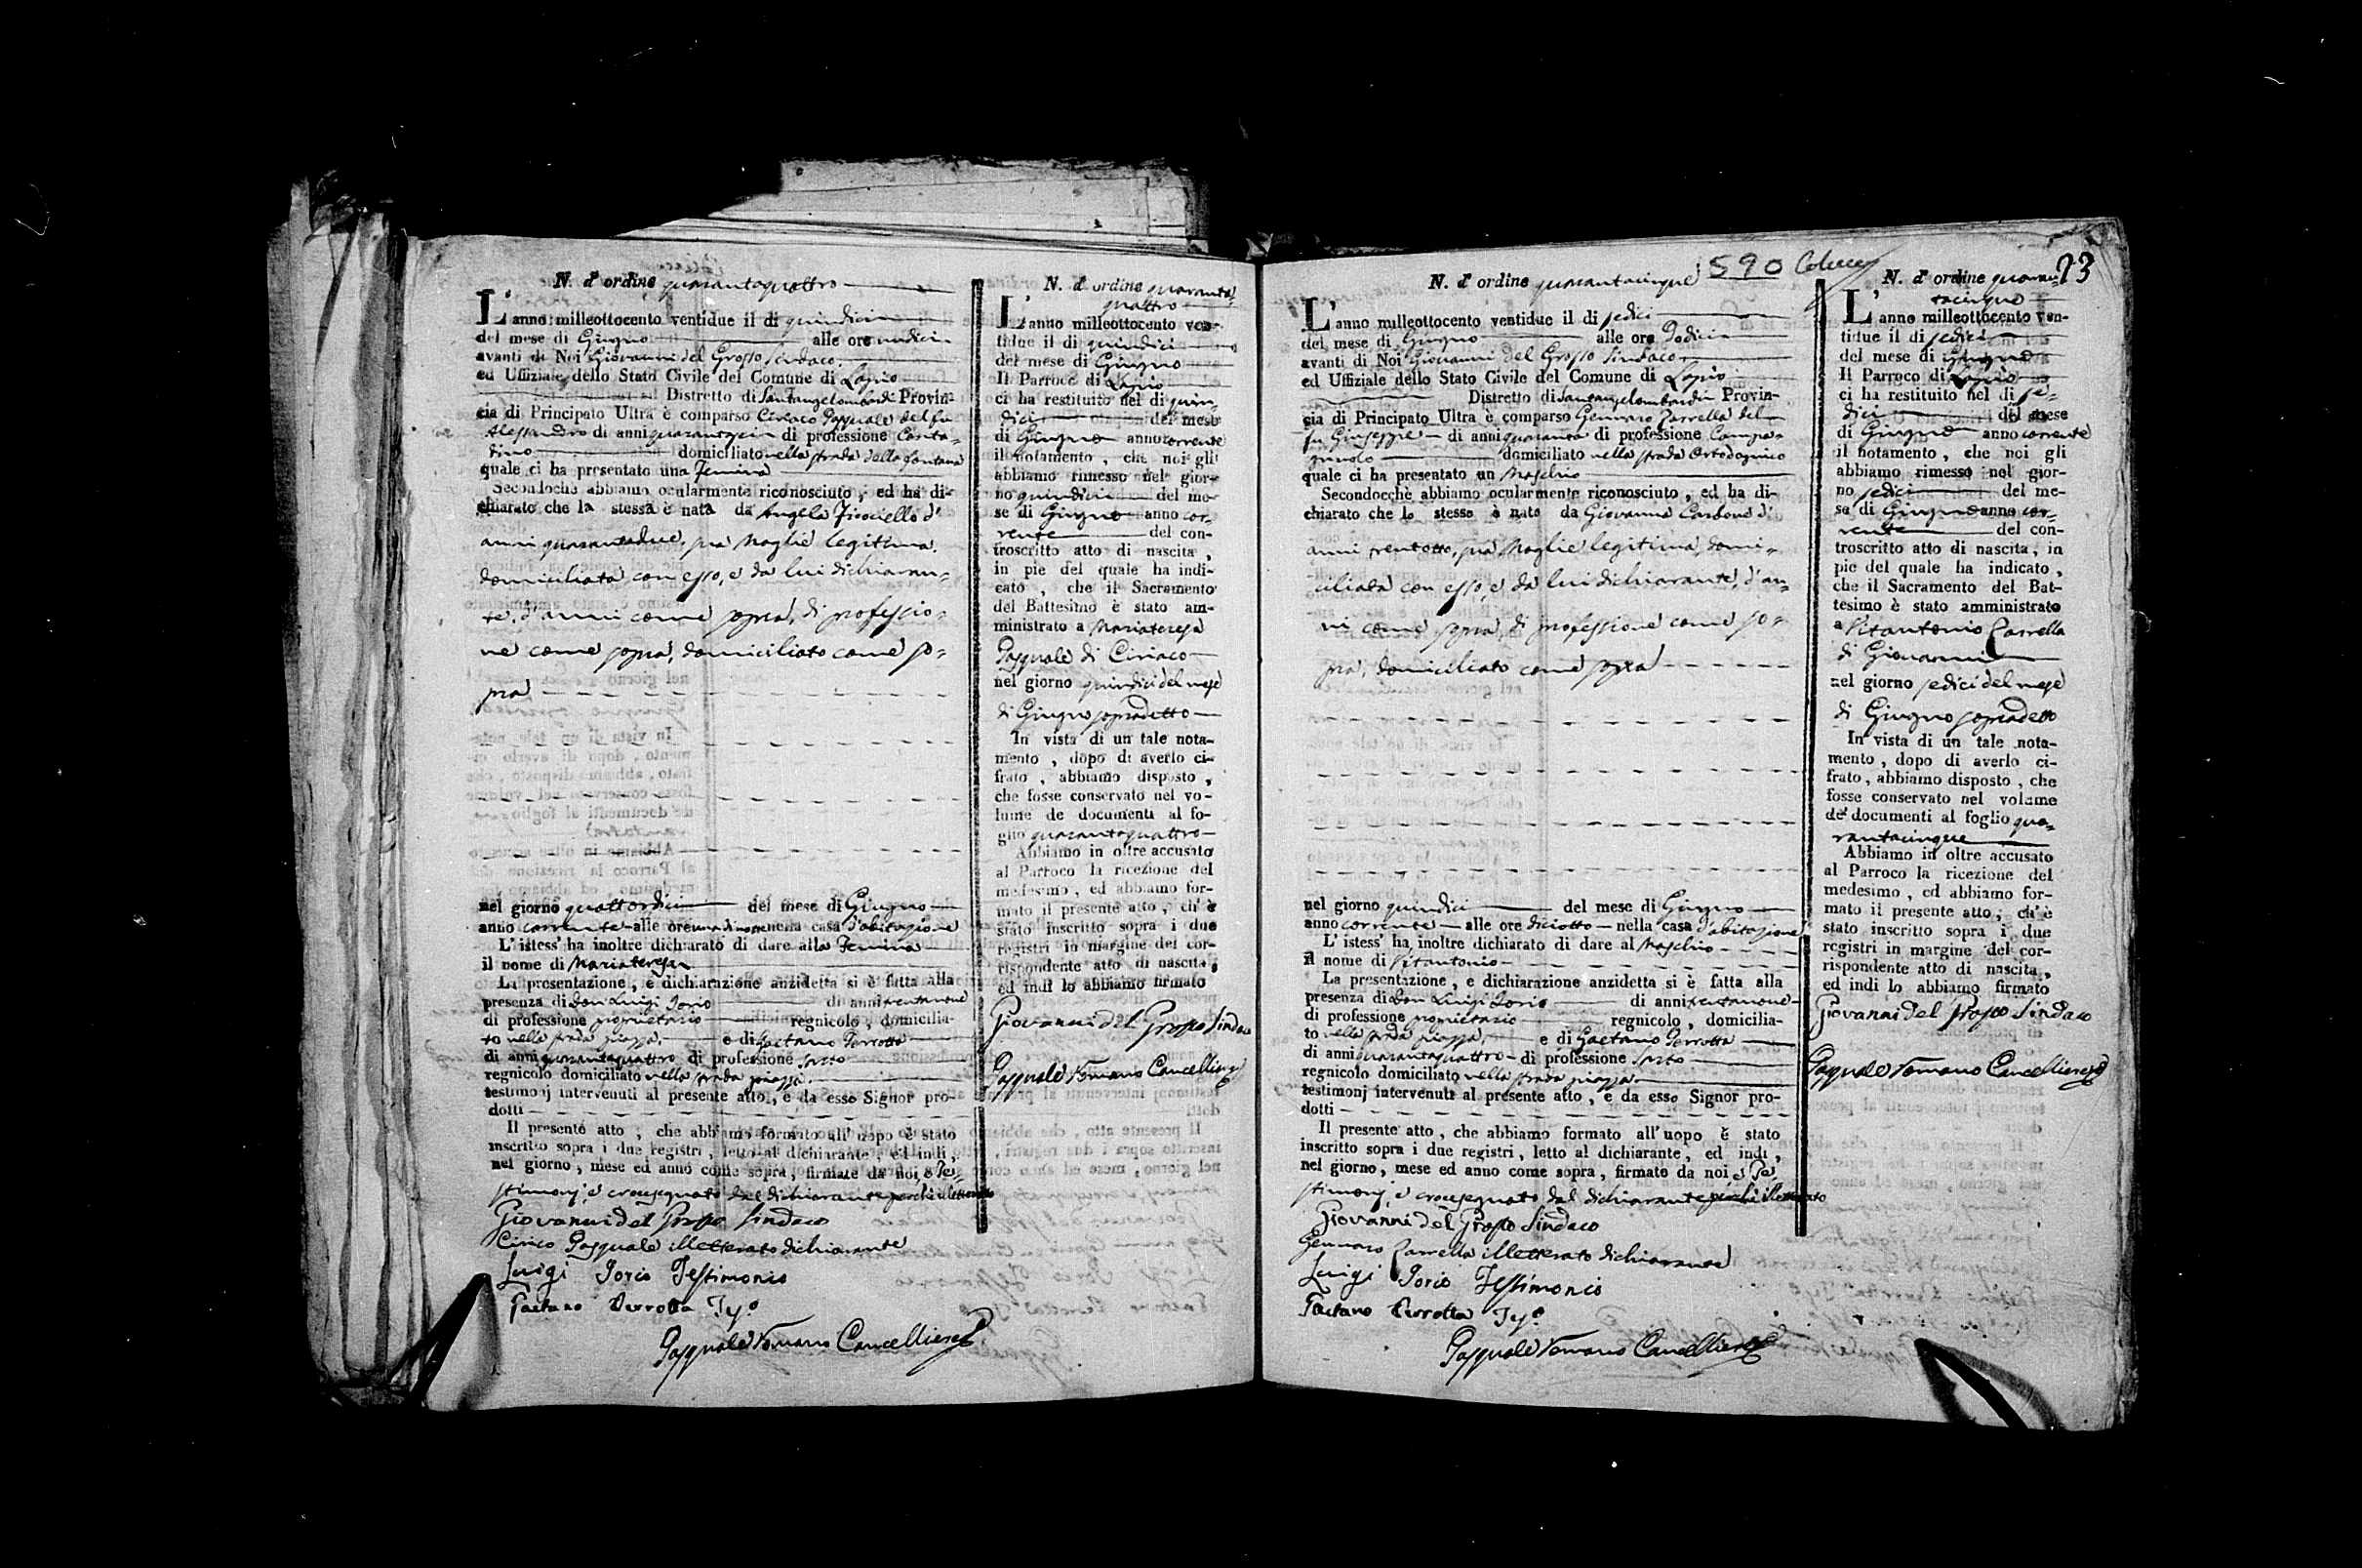 N. d' ordine quarantaquattro
L' anno milleottocento ventidue il dì quindici
del mese di Giugno alle ore undici
avanti di Noi Giovanni del Grosso Sindaco
ed Uffiziale dello Stato Civile del Comune di Lapio
Distretto di Santangelombardi Provin-
cia di Principato Ultra è comparso Ciriaco Pasquale del fu
Alessandro di anni di professione Conta-
dino domiciliato nella strada della fontana
quale ci ha presentato una Femina
Secondochè abbiamo ocularmente riconosciuto, ed ha di-
chiarato che la stessa è nata da Angela d'
anni quarantadue, sua Moglie legittima,
domiciliata con esso, e da lui dichiaran-
te, d'anni come sopra, di professio-
ne come sopra, domiciliato come so-
pra
nel giorno quattordici del mese di Giugno
anno corrente alle ore nella casa d'abitazione
L' istess' ha inoltre dichiarato di dare alla Femina
il nome di Mariateresa
La presentazione, e dichiarazione anzidetta si è fatta alla
presenza di Don Luigi Iorio di anni trentanove
di professione proprietario regnicolo, domicilia-
to nella strada piazza, e di Gaetano Perrotta
di anni quarantaquattro di professione Sarto
regnicolo domiciliato nella strada piazza
testimonj intervenuti al presente atto, e da esso Signor pro-
dotti
Il presente atto, che abbiamo formato all' uopo è stato
inscritto sopra i due registri, letto al dichiarante, ed indi,
nel giorno, mese ed anno come sopra, firmato da noi, e Te-
stimonj, e crocesegnato dal dichiarante perchè illetterato
Giovanni del Grosso Sindaco
Cirico Pasquale illetterato dichiarante
Luigi Iorio Testimonio
Gaetano Perrotta Tes.º
Pasquale Romano Cancelliere
N. d' ordine quaranta-
quattro
L' anno milleottocento ven-
tidue il dì quindici
del mese di Giugno
Il Parroco di Lapio
ci ha restituito nel dì quin-
dici del mese
di Giugno anno corrente
il notamento, che noi gli
abbiamo rimesso nel gior-
no quindici del me-
se di Giugno anno cor-
rente del con-
troscritto atto di nascita,
in piè del quale ha indi-
cato, che il Sacramento
del Battesimo è stato am-
ministrato a Mariateresa
Pasquale di Ciriaco
nel giorno quindici del mese
di Giugno sopradetto
In vista di un tale nota-
mento, dopo di averlo ci-
frato, abbiamo disposto,
che fosse conservato nel vo-
lume de documenti al fo-
glio quarantaquattro
Abbiamo in oltre accusato
al Parroco la ricezione del
medesimo, ed abbiamo for-
mato il presente atto, ch' è
stato inscritto sopra i due
registri in margine del cor-
rispondente atto di nascita,
ed indi lo abbiamo firmato
Giovanni del Grosso Sindaco
Pasquale Romano Cancelliere
N. d' ordine quarantacinque 590
L' anno milleottocento ventidue il dì sedici
del mese di Giugno alle ore Dodici
avanti di Noi Giovanni del Grosso Sindaco
ed Uffiziale dello Stato Civile del Comune di Lapio
Distretto di Santangelombardi Provin-
cia di Principato Ultra è comparso Gennaro Zarrella del
fu Giuseppe di anni quaranta di professione Campa-
gnuolo domiciliato nella strada
quale ci ha presentato un Maschio
Secondocchè abbiamo ocularmente riconosciuto, ed ha di-
chiarato che lo stesso è nato da Giovanna Carbone d'
anni trentotto, sua Moglie legitima, domi-
ciliata con esso, e da lui dichiarante, d'an-
ni come sopra, di professione come so-
pra, domiciliato come sopra
nel giorno quindici del mese di Giugno
anno corrente alle ore diciotto nella casa d'abitazione
L' istess' ha inoltre dichiarato di dare al Maschio
il nome di Vitantonio
La presentazione, e dichiarazione anzidetta si è fatta alla
presenza di Don Luigi Iorio di anni trentanove
di professione proprietario regnicolo, domicilia-
to nella strada piazza, e di Gaetano Perrotta
di anni quarantaquattro di professione Sarto
regnicolo domiciliato nella strada piazza
testimonj intervenuti al presente atto, e da esso Signor pro-
dotti
Il presente atto, che abbiamo formato all' uopo è stato
inscritto sopra i due registri, letto al dichiarante, ed indi,
nel giorno, mese ed anno come sopra, firmato da noi, e Te-
stimonj, e crocesegnato dal dichiarante perchè illetterato
Giovanni del Grosso Sindaco
Gennaro Zarrella illetterato dichiarante
Luigi Iorio Testimonio
Gaetano Perrotta Tes.º
Pasquale Romano Cancelliere
N. d' ordine quaran- 23
tacinque
L' anno milleottocento ven-
tidue il dì sedici
del mese di Giugno
Il Parroco di Lapio
ci ha restituito nel dì se-
dici del mese
di Giugno anno corrente
il notamento, che noi gli
abbiamo rimesso nel gior-
no sedici del me-
se di Giugno anno cor-
rente del con-
troscritto atto di nascita, in
piè del quale ha indicato,
che il Sacramento del Bat-
tesimo è stato amministrato
a Vitantonio Zarrella
di Giovanni
nel giorno sedici del mese
di Giugno sopradetto
In vista di un tale nota-
mento, dopo di averlo ci-
frato, abbiamo disposto, che
fosse conservato nel volume
de' documenti al foglio qua-
rantacinque
Abbiamo in oltre accusato
al Parroco la ricezione del
medesimo, ed abbiamo for-
mato il presente atto, ch' è
stato inscritto sopra i due
registri in margine del cor-
rispondente atto di nascita,
ed indi lo abbiamo firmato
Giovanni del Grosso Sindaco
Pasquale Romano Cancelliere